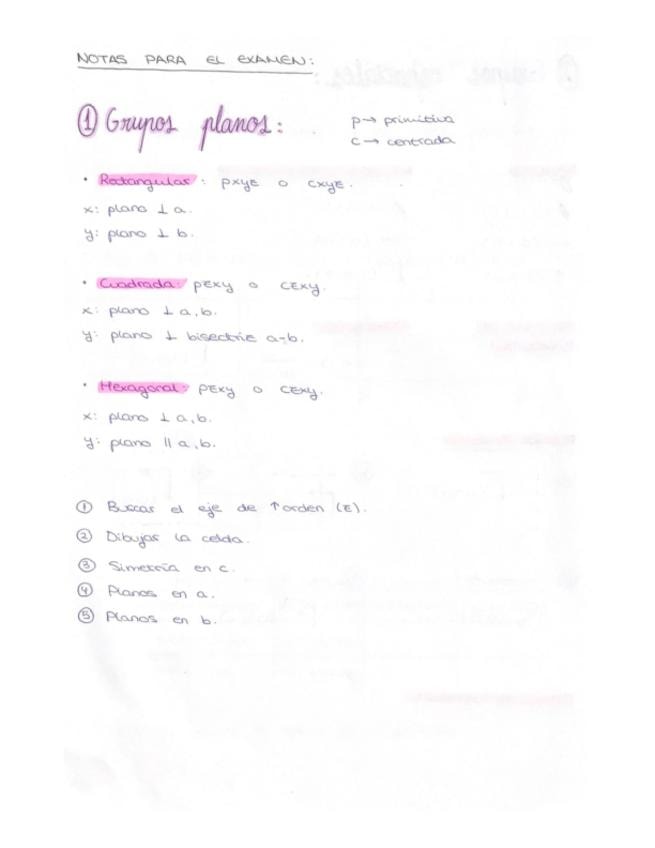 NOTAS PARA EL EXAMEN:
① Grupos planos:
p → primitiva
c → centrada
• Rectangular: pxyE o cxyE.
x: plano ⊥ a.
y: plano ⊥ b.
• Cuadrada: pExy o cExy.
x: plano ⊥ a, b.
y: plano ⊥ bisectriz a-b.
• Hexagonal: pExy o cExy.
x: plano ⊥ a, b.
y: plano || a, b.
① Buscar el eje de ↑ orden (E).
② Dibujar la celda.
③ Simetría en c.
④ Planos en a.
⑤ Planos en b.